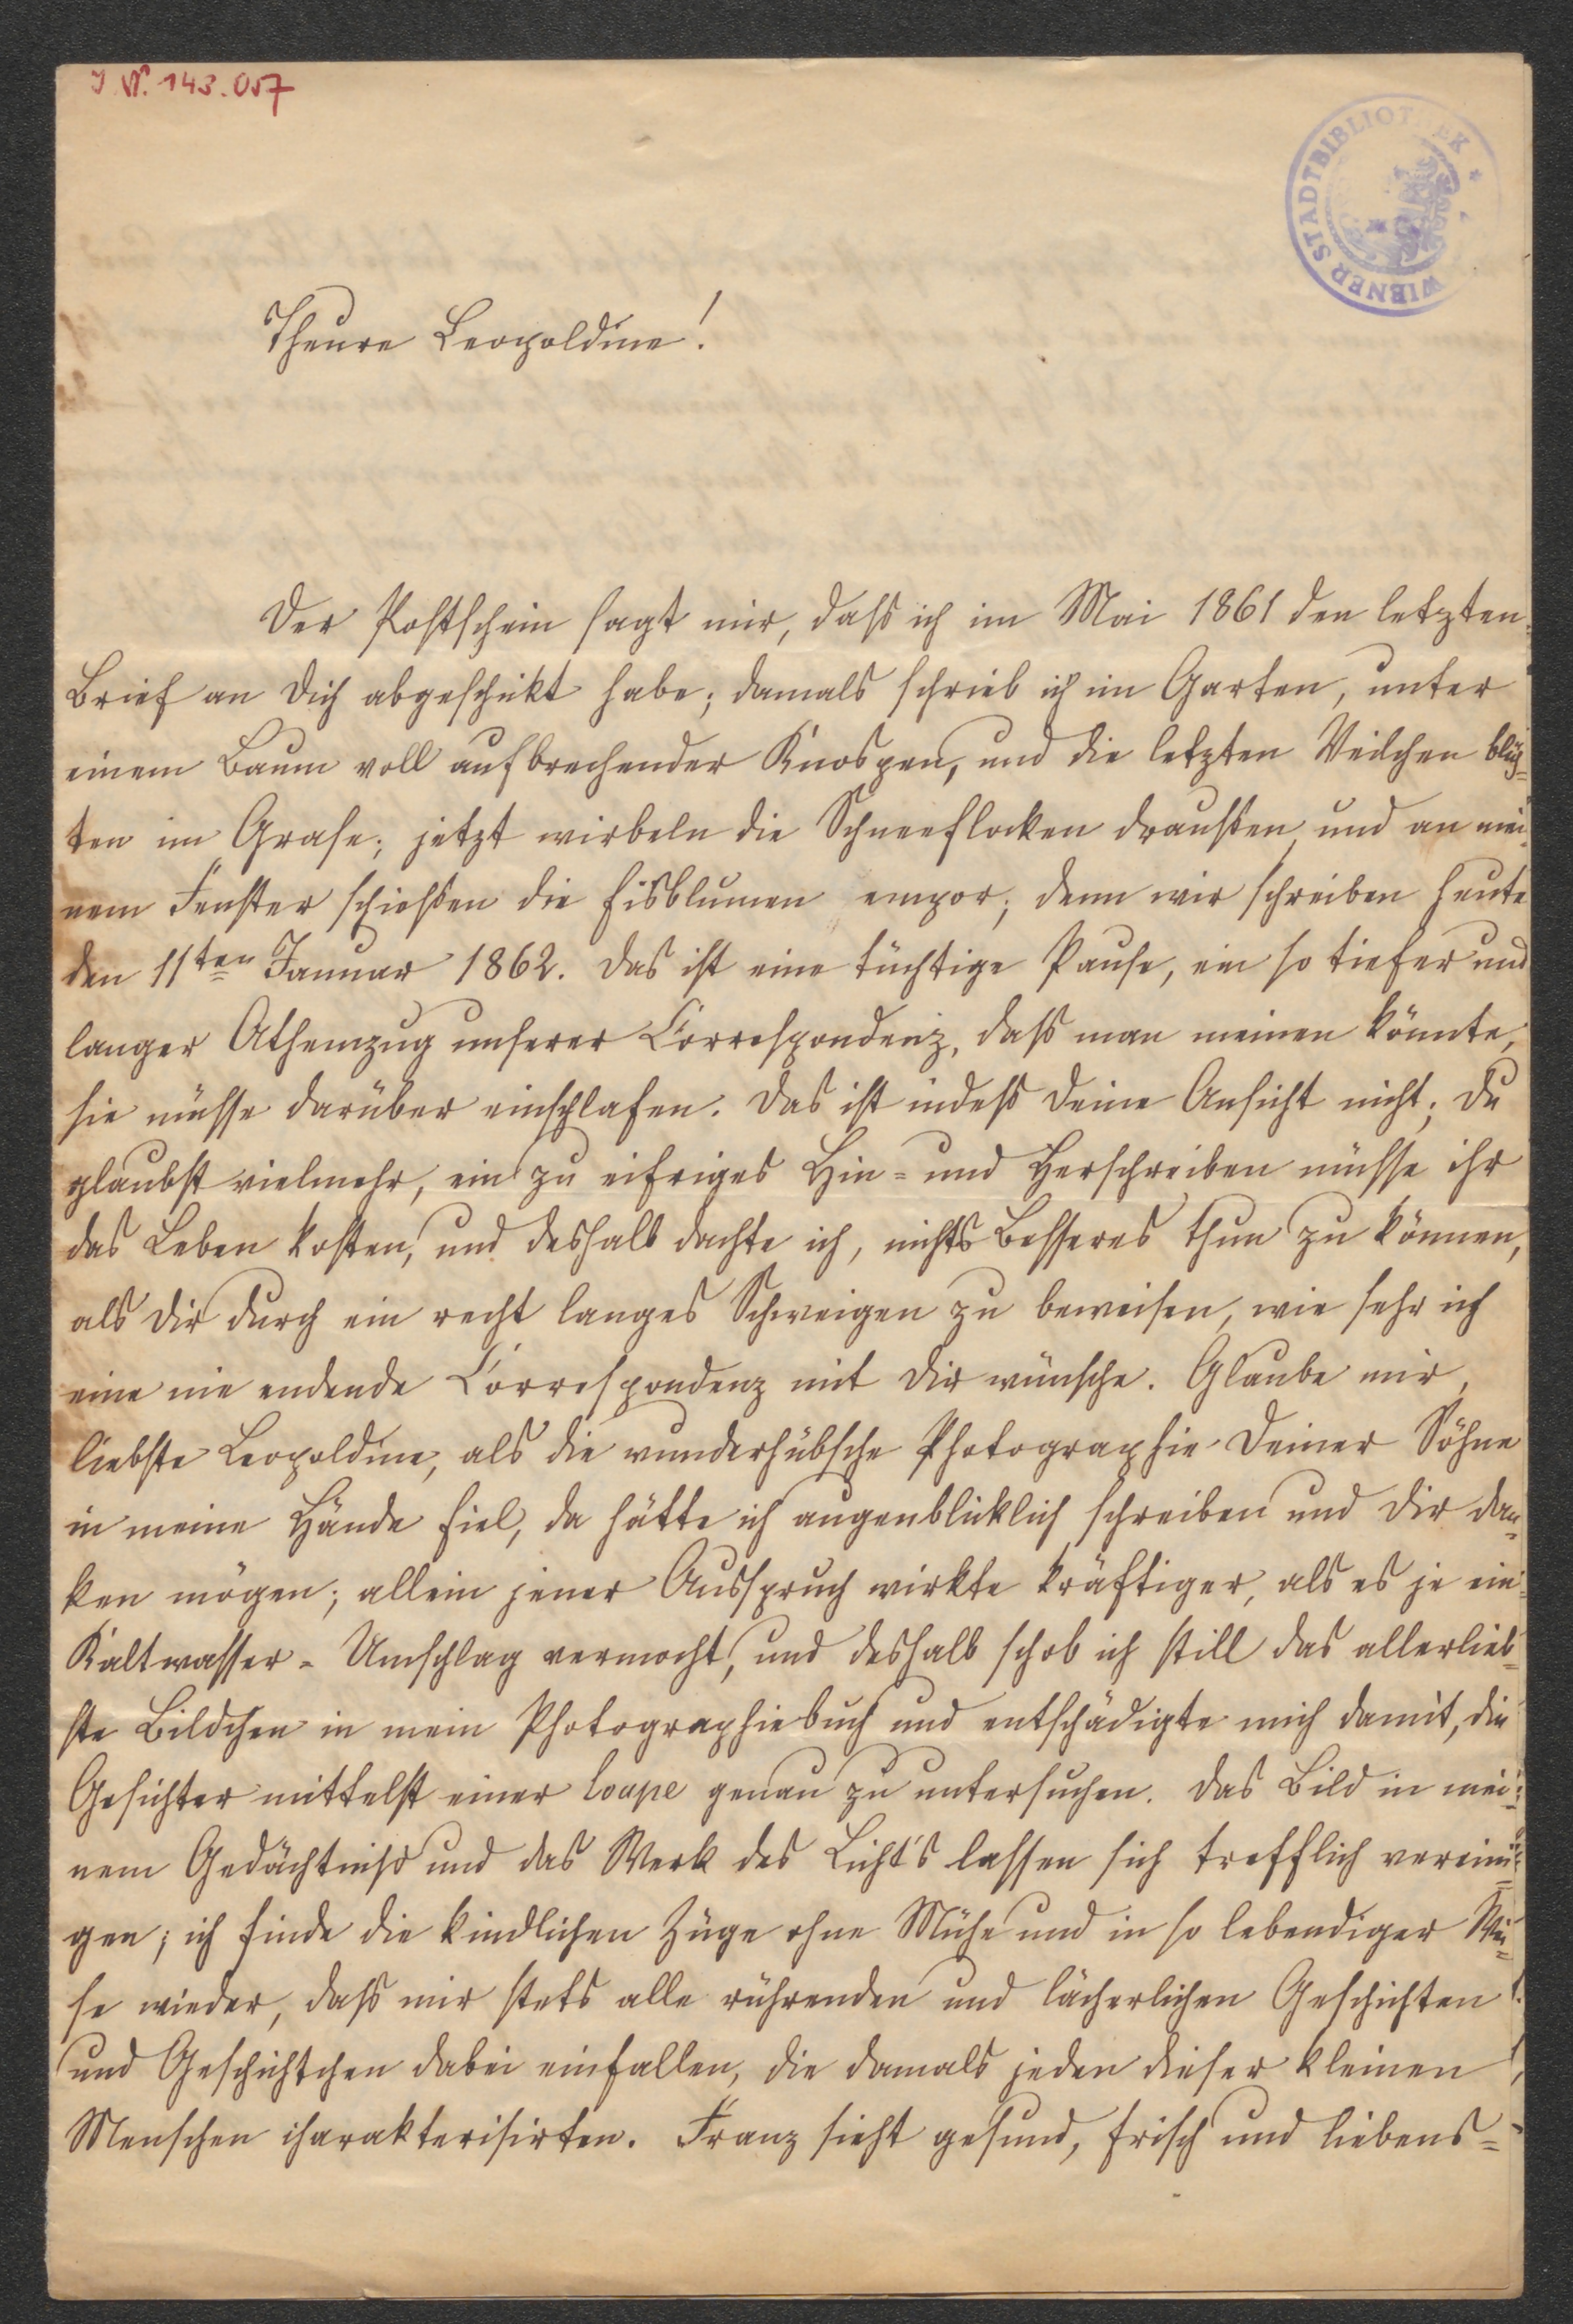 J. N. 143.057
WIENER STADTBIBLIOTHEK
Theure Leopoldine!
Der Postschein sagt mir, daß ich im Mai 1861 den letzten
Brief an Dich abgeschikt habe; damals schrieb ich im Garten, unter
einem Baum voll aufbrechender Knospen, und die letzten Veilchen blüh=
ten im Grase; jetzt wirbeln die Schneeflocken draußen, und an mei=
nem Fenster schießen die Eisblumen empor; denn wir schreiben heute
den 11ten Januar 1862. Das ist eine tüchtige Pause, ein so tiefer und
langer Athemzug unserer Correspondenz, daß man meinen könnte,
sie müsse darüber einschlafen. Das ist indeß Deine Ansicht nicht; Du
glaubst vielmehr, ein zu eifriges Hin= und Herschreiben müsse ihr
das Leben kosten, und deshalb dachte ich, nichts Besseres thun zu können,
als Dir durch ein recht langes Schweigen zu beweisen, wie sehr ich
eine nie endende Correspondenz mit Dir wünsche. Glaube mir,
liebste Leopoldine, als die wunderhübsche Photographie Deiner Söhne
in meine Hände fiel, da hätte ich augenbliklich schreiben und Dir dan=
ken mögen; allein jener Ausspruch wirkte kräftiger, als es je ein
Kaltwasser=Umschlag vermocht, und deshalb schob ich still das allerlieb=
ste Bildchen in mein Photographiebuch und entschädigte mich damit, die
Gesichter mittelst einer loupe genau zu untersuchen. Das Bild in mei=
nem Gedächtniß und das Werk des Licht's lassen sich trefflich vereini=
gen; ich finde die kindlichen Züge ohne Mühe und in so lebendiger Wei=
se wieder, daß mir stets alle rührenden und lächerlichen Geschichten
und Geschichtchen dabei einfallen, die damals jeden dieser kleinen
Menschen charakterisirten. Franz sieht gesund, frisch und liebens=